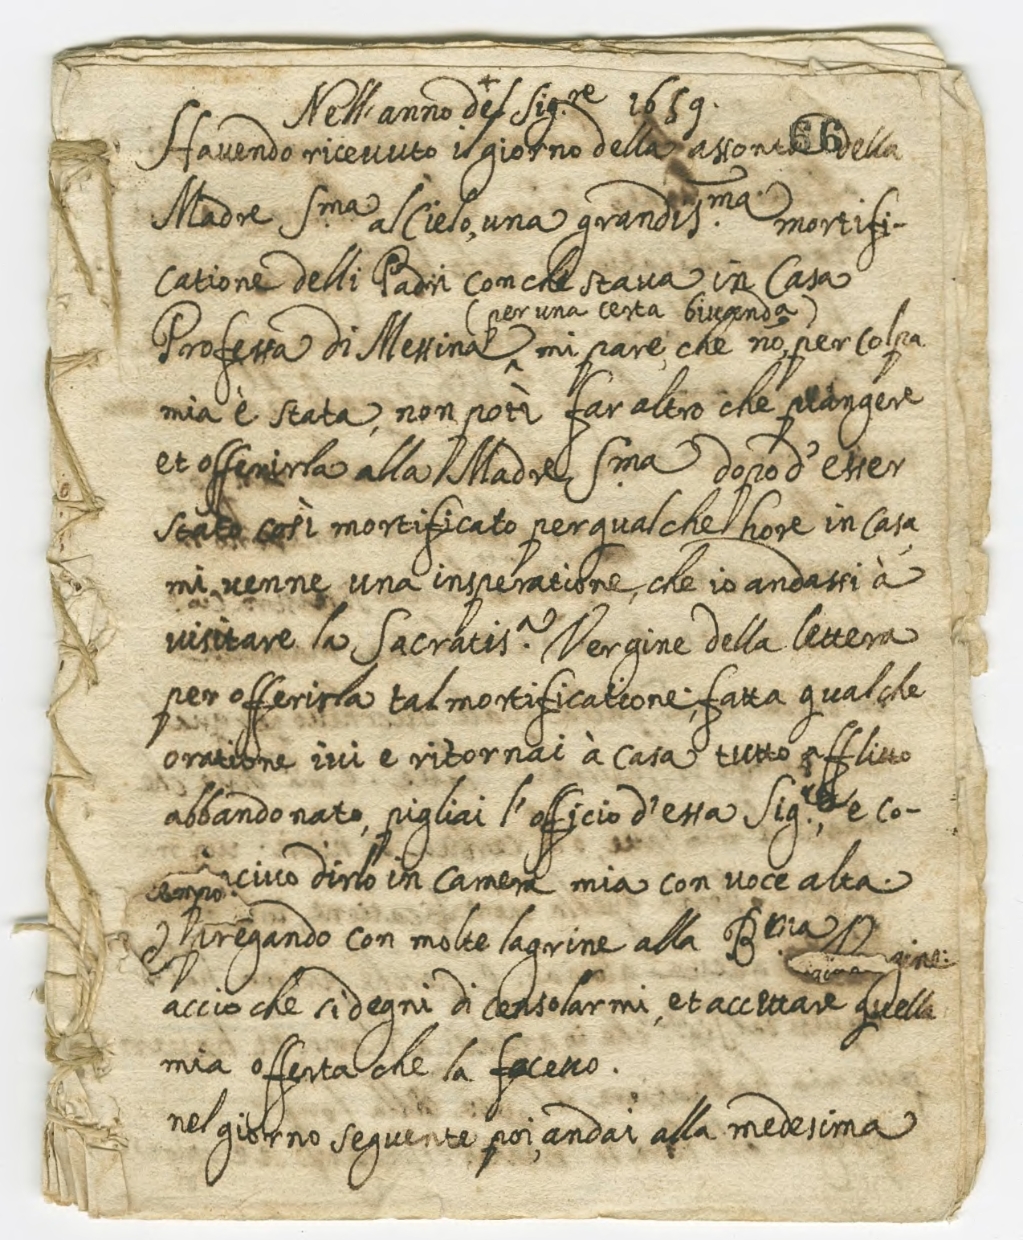 Nell'anno del Sig.re 1659.
66
Havendo ricevuto il giorno della assonta della
Madre S.ma al Cielo, una grandis.ma mortifi-
catione delli Padri con che stava in Casa
(per una certa bivanda)
Professa di Messina, mi pare, che nõ, per colpa
mia è stata, non potì far altro che piangere
et offerirla alla Madre S.ma dopo d'esser
stato così mortificato per qualche hore in Casa
mi venne una insperatione, che io andassi à
visitare la Sacratis.a Vergine della lettera
per offerirla tal mortificatione, fatta qualche
oratione ivi e ritornai à casa tutto afflitto
abbandonato, pigliai l'officio d'essa Sig.ra, e co-
dirlo in camera mia con voce alta.
pregando con molte lagrine alla B.ma
accio che si degni di consolarmi, et accettare quella
mia offerta che la facevo.
nel giorno seguente poi, andai alla medesima